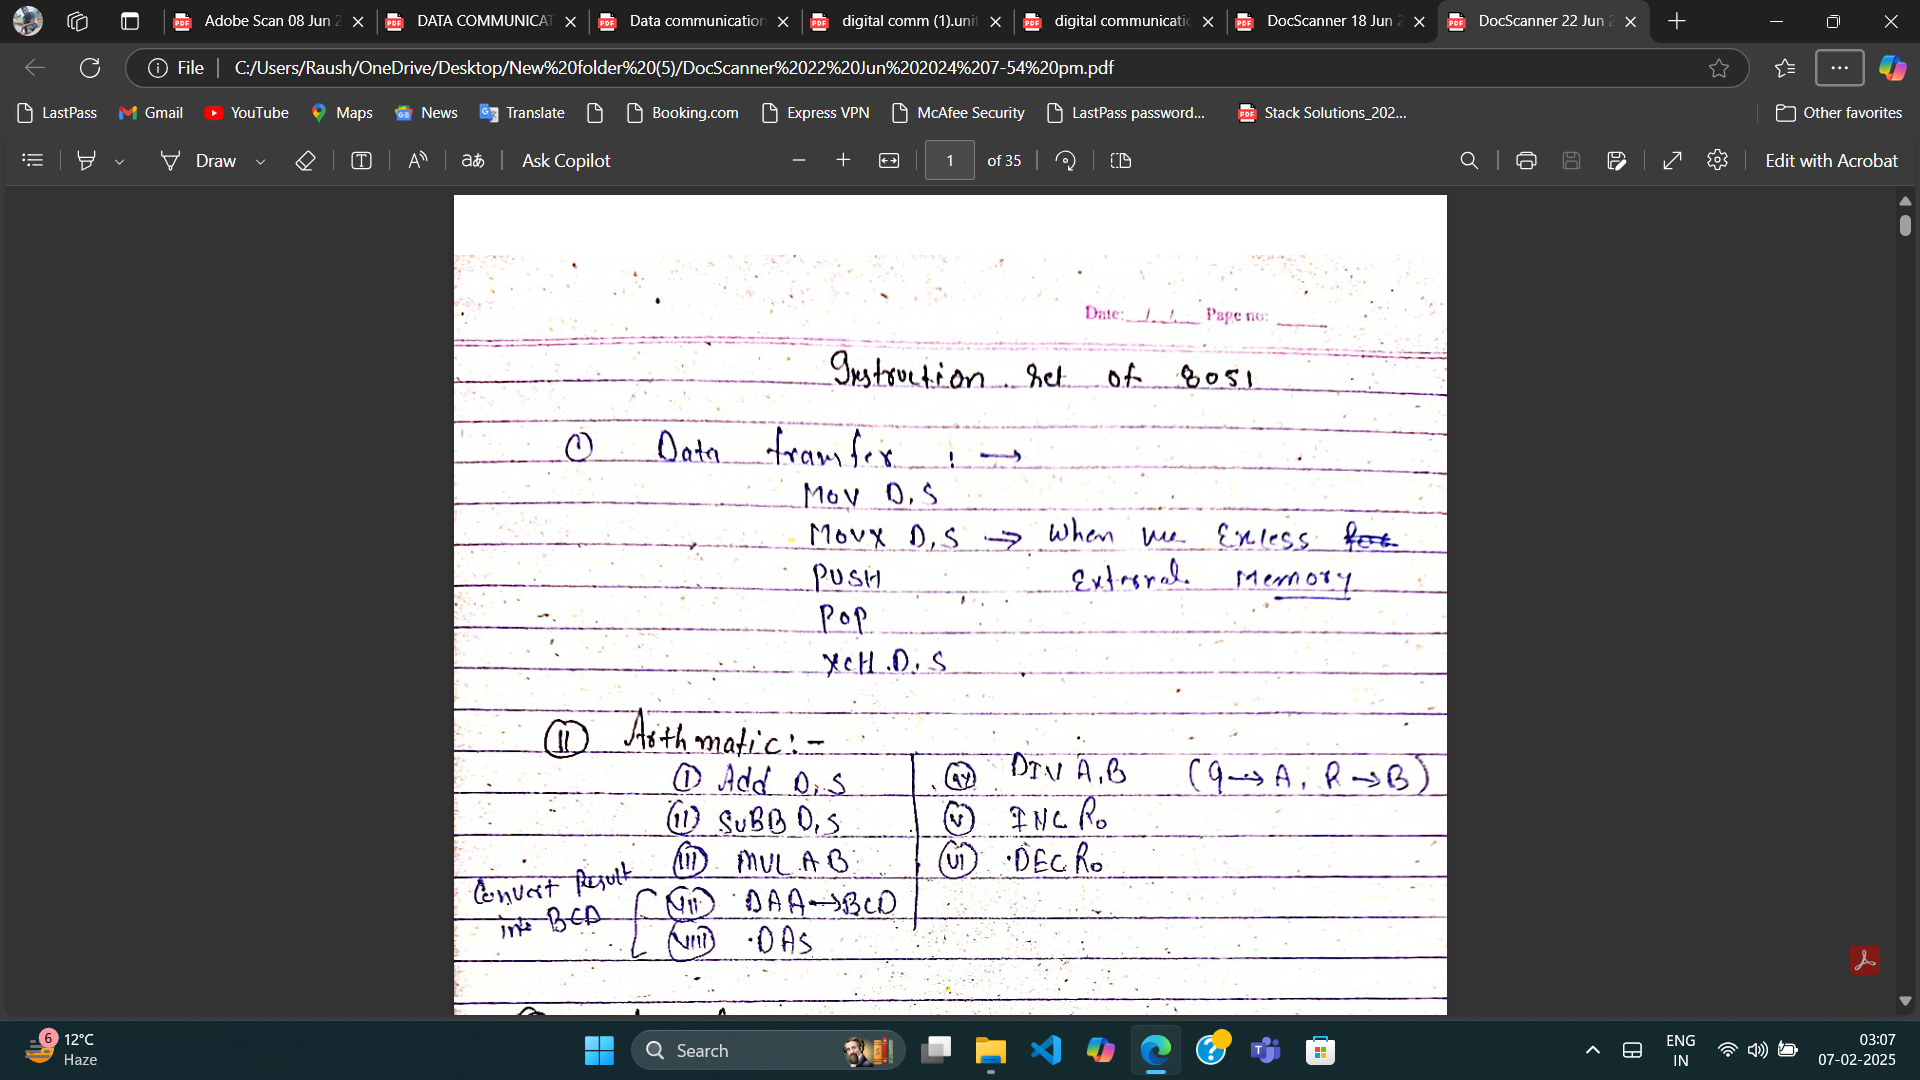 Adobe Scan 08 Jun 2
DATA COMMUNICAT
Data communication
digital comm (1).uni
digital communicatic
DocScanner 18 Jun 2
DocScanner 22 Jun 2
File
C:/Users/Raush/OneDrive/Desktop/New%20folder%20(5)/DocScanner%2022%20Jun%202024%207-54%20pm.pdf
LastPass
Gmail
YouTube
Maps
News
Translate
Booking.com
Express VPN
McAfee Security
LastPass password...
Stack Solutions_202...
Other favorites
Draw
Ask Copilot
1 of 35
Edit with Acrobat
Date: / / Page no:
Instruction Set of 8051
(I) Data transfer : →
Mov D,S
Movx D,S → When we Exless
PUSH External Memory
Pop
XcH D,S
(II) Arithmatic :-
(I) Add D,S
(II) SuBB D,S
(III) MUL AB
(IV) DIV A,B (Q→A, R→B)
(V) INC R0
(VI) DEC R0
Convert Result
into BCD
(VII) DAA→BCD
(VIII) DAS
6
12°C
Haze
Search
ENG
IN
03:07
07-02-2025